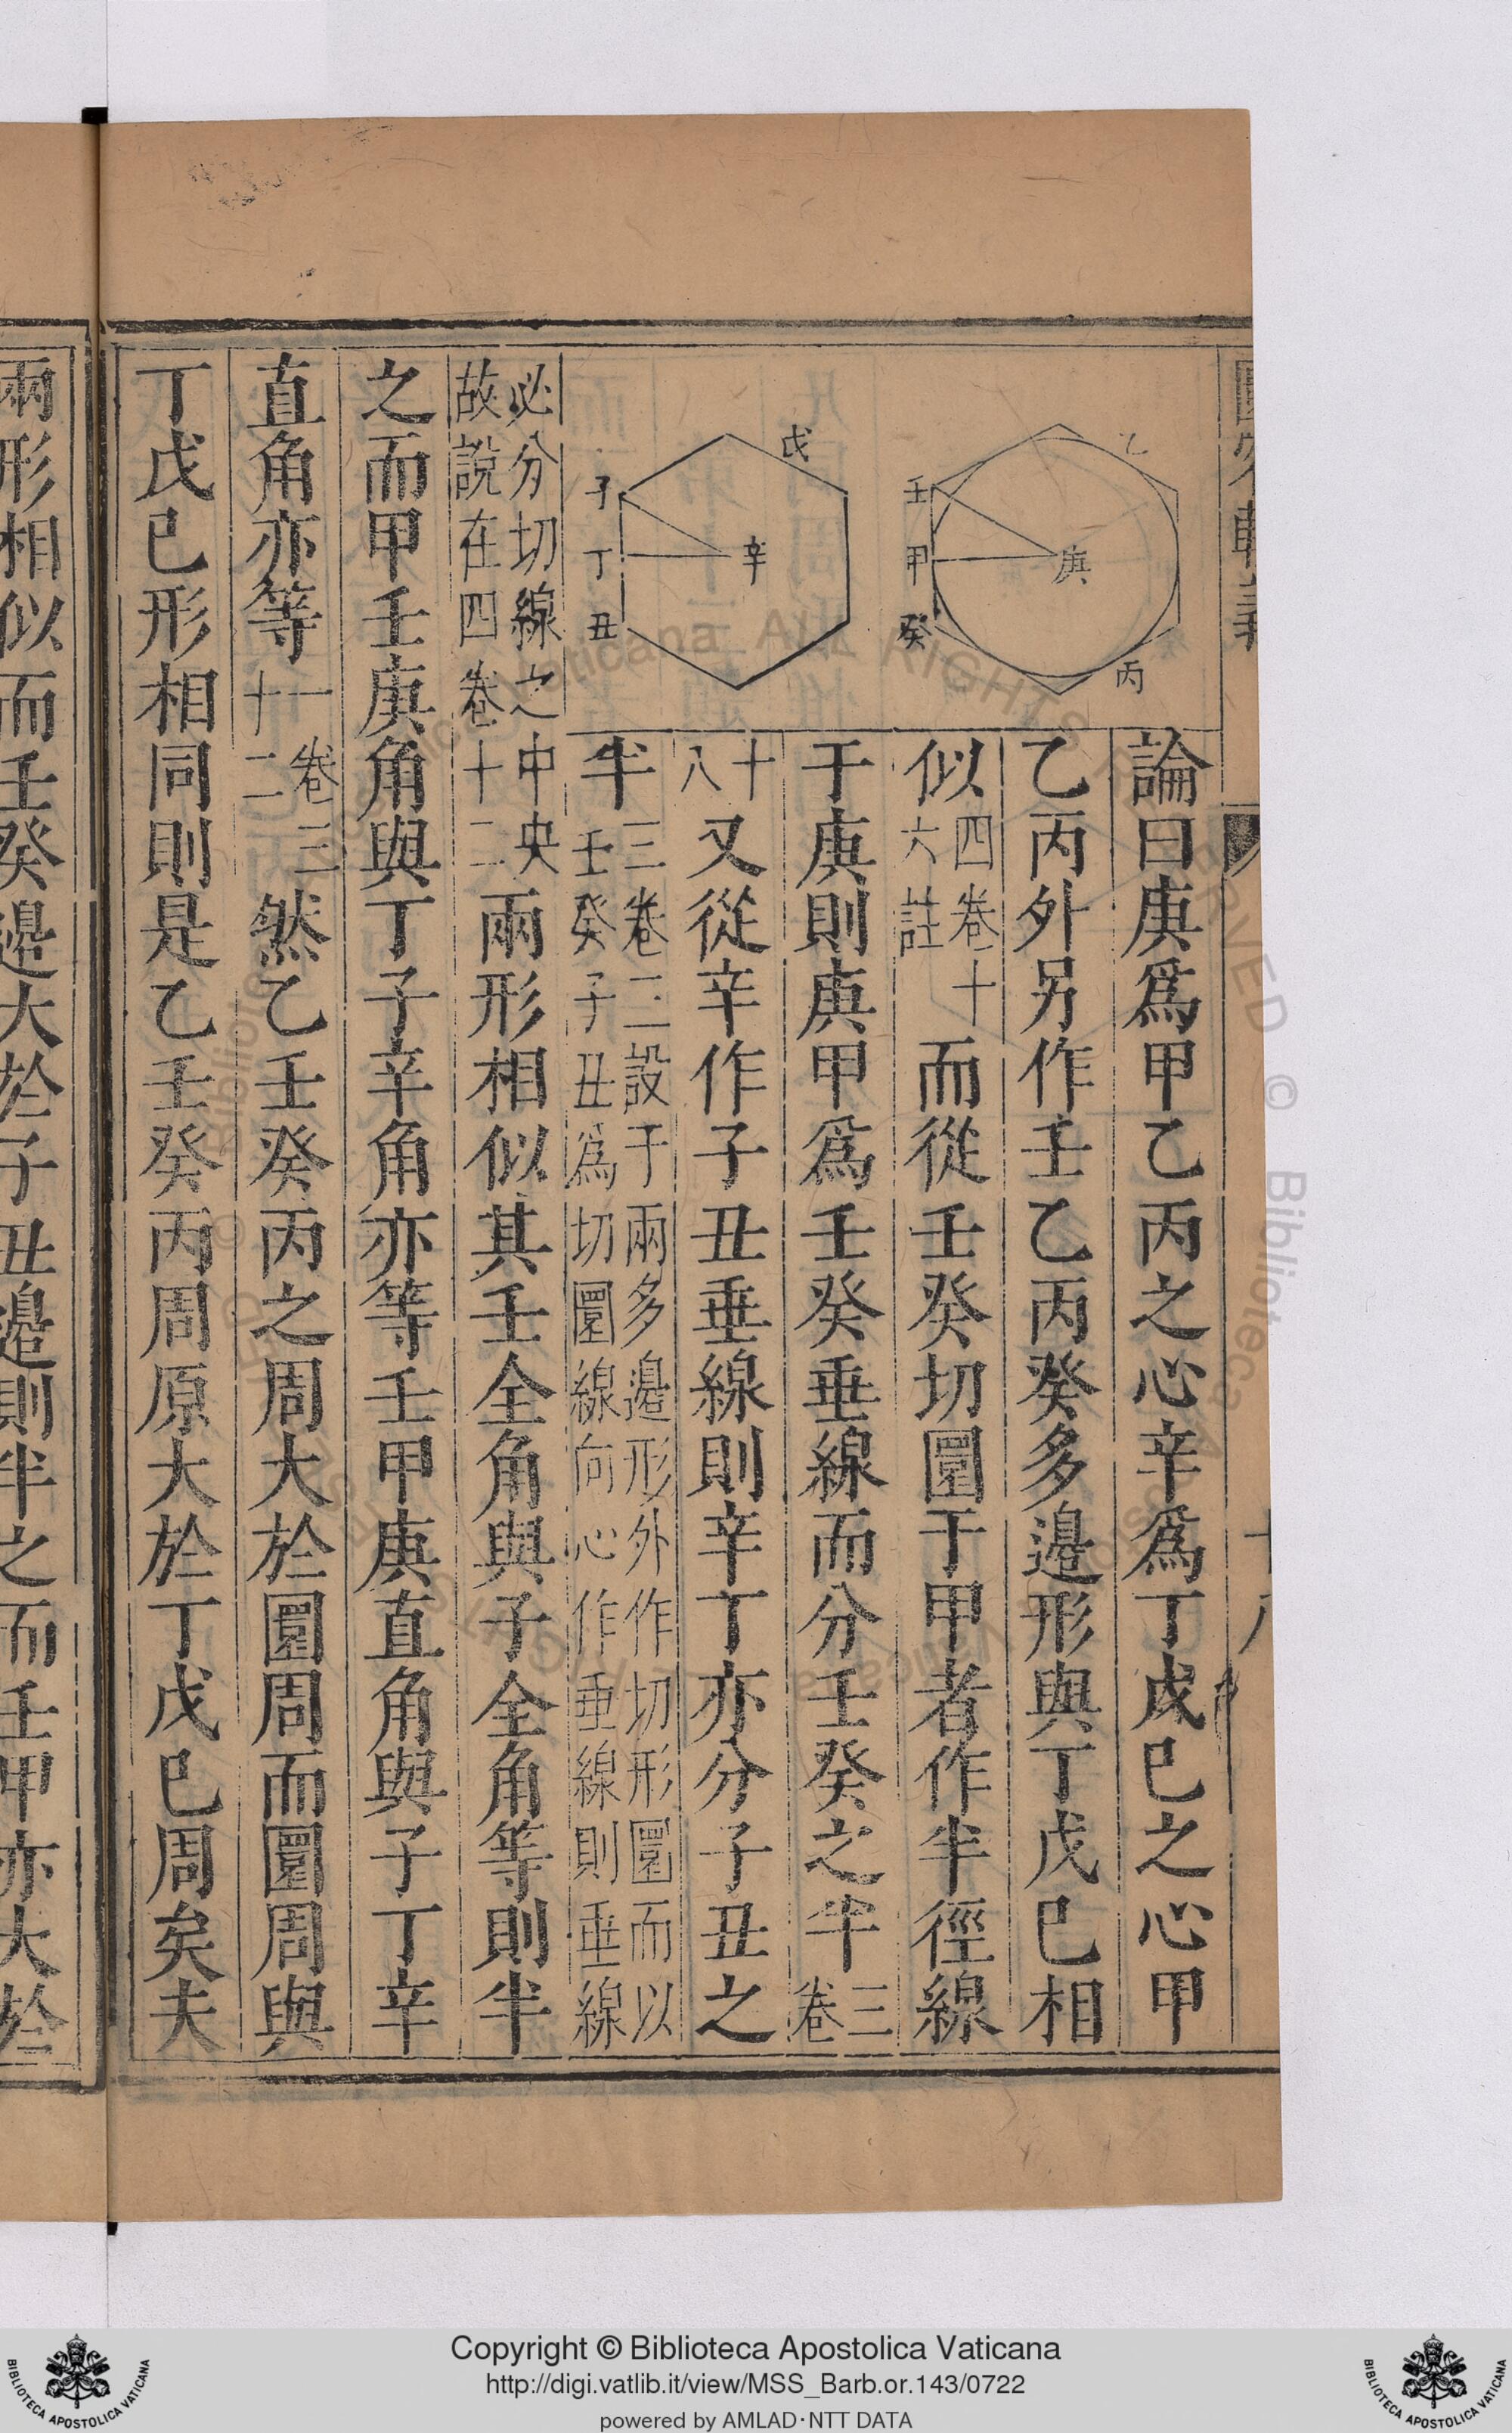 乙
壬
庚
甲
癸
丙
戊
子
辛
丁
丑
論曰庚爲甲乙丙之心辛爲丁戊已之心甲
乙丙外另作壬乙丙癸多邉形與丁戊已相
似四卷十六註而從壬癸切圜于甲者作半徑線
于庚則庚甲爲壬癸垂線而分壬癸之半三卷
十八又從辛作子丑垂線則辛丁亦分子丑之
半三卷三設于兩多邉形外作切形圜而以壬癸子丑爲切圜線向心作垂線則垂線
必分切線之中央故說在四卷十二兩形相似其壬全角與子全角等則半
之而甲壬庚角與丁子辛角亦等壬甲庚直角與子丁辛
直角亦等一卷三十二然乙壬癸丙之周大於圜周而圜周與
丁戊已形相同則是乙壬癸丙周原大於丁戊已周矣夫
兩形相似而壬癸邉大於子丑邉則半之而壬甲亦大於
Copyright © Biblioteca Apostolica Vaticana
http://digi.vatlib.it/view/MSS_Barb.or.143/0722
powered by AMLAD·NTT DATA
BIBLIOTECA APOSTOLICA VATICANA
BIBLIOTECA APOSTOLICA VATICANA